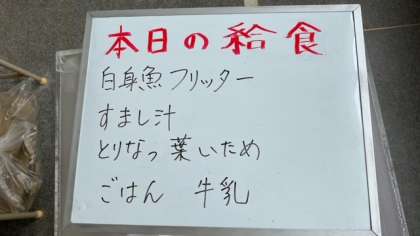 本日の給食
白身魚フリッター
すまし汁
とりなっ葉いため
ごはん 牛乳